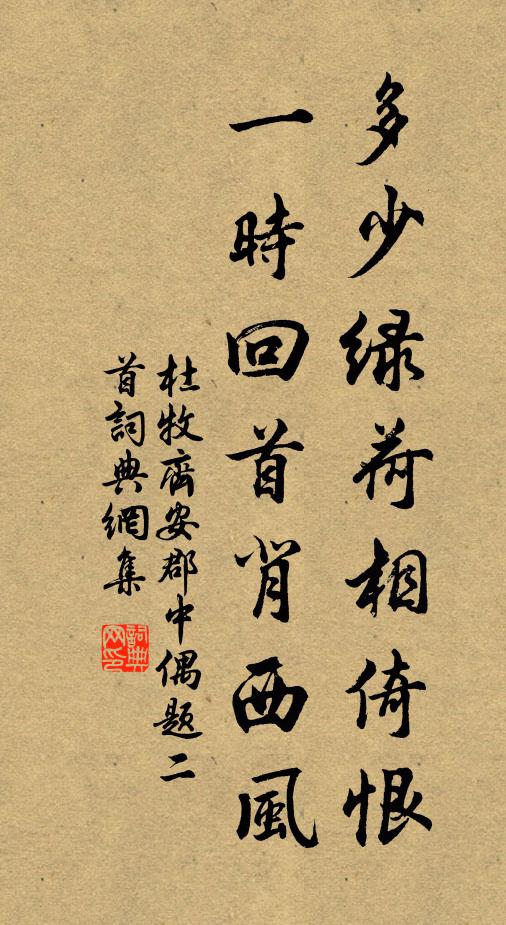 多少绿荷相倚恨
一時回首背西風
杜牧齊安郡中偶题二
首詞典網集
詞典网印